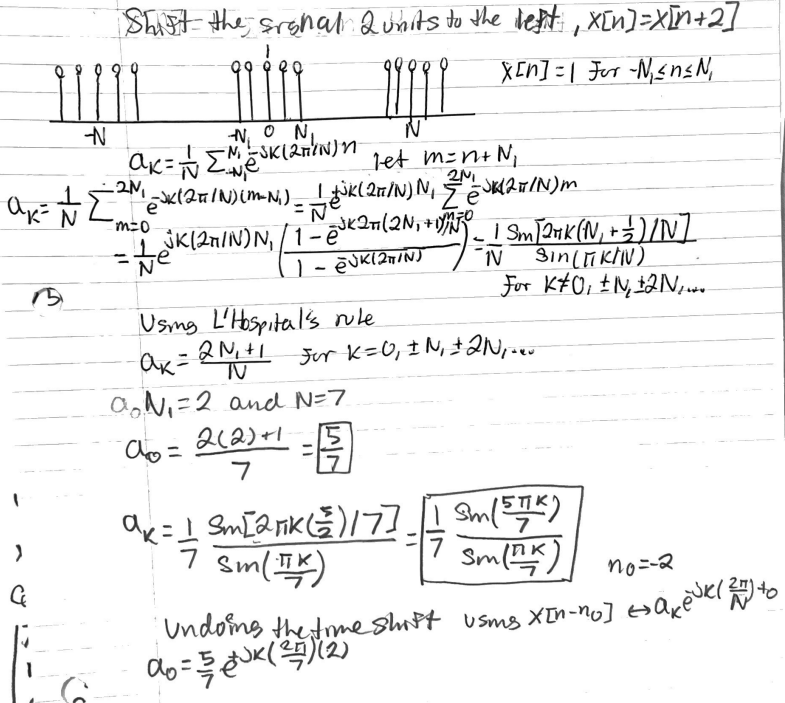 Shift the signal 2 units to the left, x[n]=x[n+2]
x[n]=1 for -N₁≤n≤N₁
-N -N₁ 0 N₁ N
aₖ = 1/N Σ_{-N₁}^{N₁} e^{-jk(2π/N)n} let m=n+N₁
aₖ = 1/N Σ_{m=0}^{2N₁} e^{-jk(2π/N)(m-N₁)} = 1/N e^{+jk(2π/N)N₁} Σ_{m=0}^{2N₁} e^{-jk(2π/N)m}
= 1/N e^{jk(2π/N)N₁} ( (1-e^{-jk2π(2N₁+1)/N}) / (1-e^{-jk(2π/N)}) ) = 1/N Sin[2πk(N₁+½)/N] / Sin(πk/N)
for k≠0, ±N, ±2N,...
Using L'Hospital's rule
aₖ = (2N₁+1)/N for k=0, ±N, ±2N,...
a₀ N₁=2 and N=7
a₀ = (2(2)+1)/7 = 5/7
aₖ = 1/7 Sin[2πk(5/2)/7] / Sin(πk/7) = 1/7 Sin(5πk/7) / Sin(πk/7)
n₀=-2
Undoing the time shift using x[n-n₀] ↔ aₖe^{-jk(2π/N)t₀}
a₀ = 5/7 e^{+jk(2π/7)(2)}